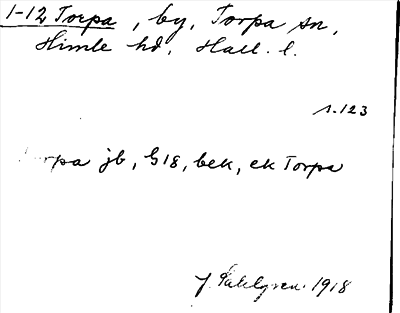 1-12 Torpa, by, Torpa sn,
Himle hd, Hall. l.
s. 123
Torpa jb, G18, bek, ek Torpa
J. Sahlgren. 1918